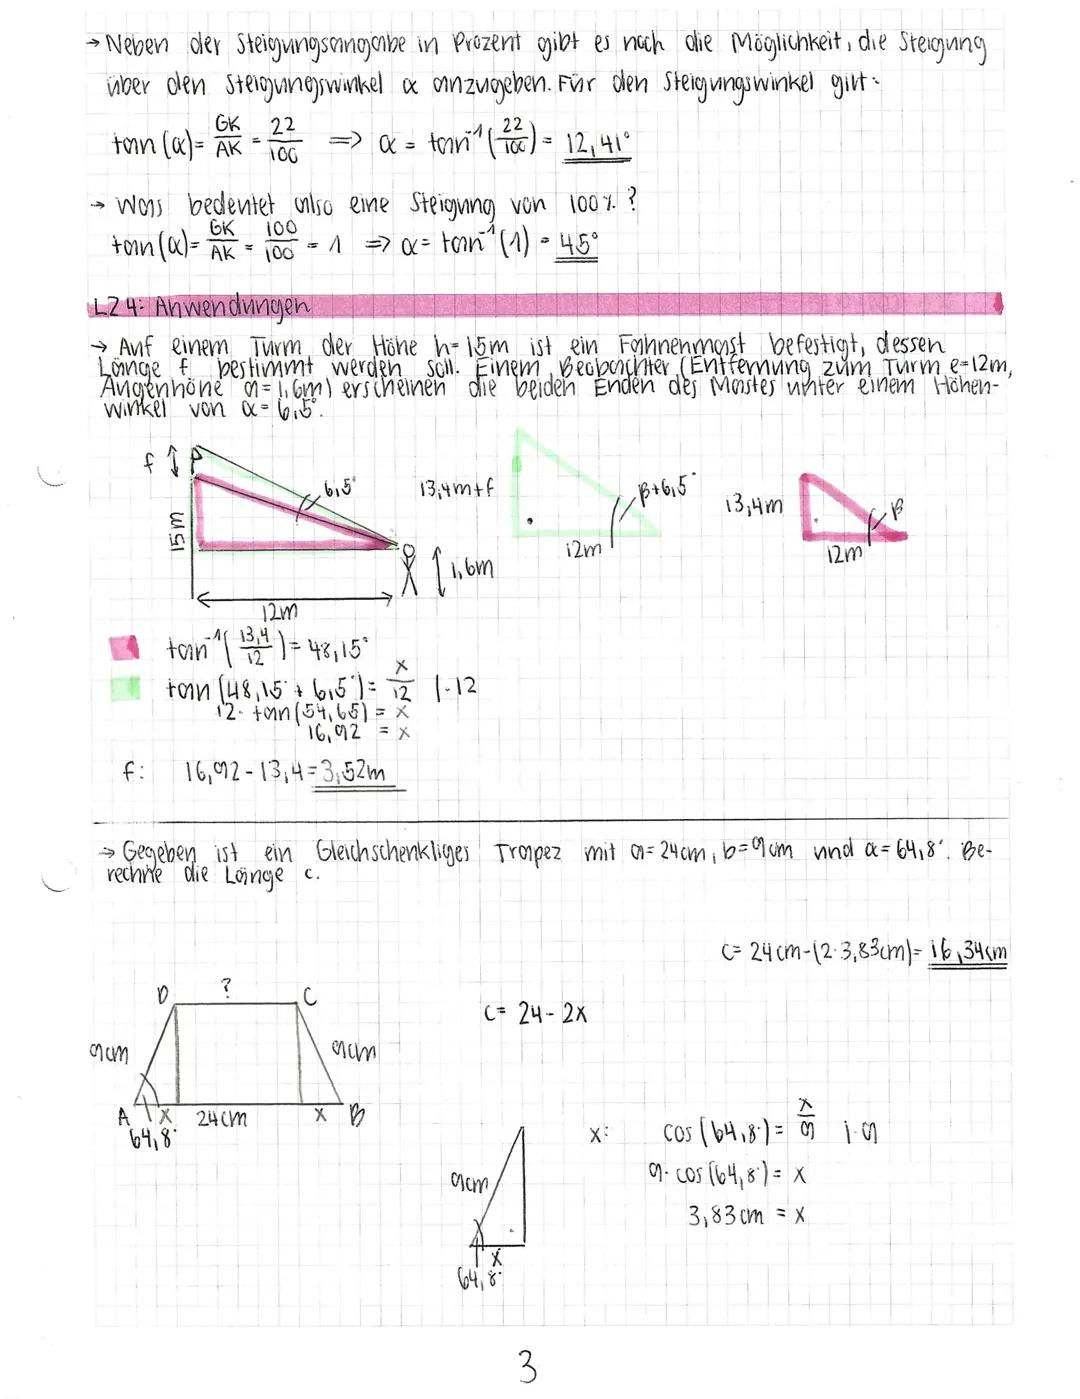 → Neben der Steigungsangabe in Prozent gibt es noch die Möglichkeit, die Steigung
über den Steigungswinkel α anzugeben. Für den Steigungswinkel gilt:
tan (α) = GK/AK = 22/100 => α = tan⁻¹(22/100) = 12,41°
→ Was bedeutet also eine Steigung von 100% ?
tan (α) = GK/AK = 100/100 = 1 => α = tan⁻¹(1) = 45°
LZ 4: Anwendungen
→ Auf einem Turm der Höhe h=15m ist ein Fahnenmast befestigt, dessen
Länge f bestimmt werden soll. Einem Beobachter (Entfernung zum Turm e=12m,
Augenhöhe a=1,6m) erscheinen die beiden Enden des Mastes unter einem Höhen-
winkel von α=6,5°.
f
6,5°
15m
12m
1,6m
13,4m+f
β+6,5°
12m
13,4m
β
12m
tan⁻¹(13,4/12) = 48,15°
tan (48,15° + 6,5°) = x/12 |·12
12· tan(54,65) = x
16,92 = x
f: 16,92 - 13,4 = 3,52m
→ Gegeben ist ein Gleichschenkliges Trapez mit a=24cm, b=9cm und α=64,8°. Be-
rechne die Länge c.
c= 24cm-(2·3,83cm)= 16,34cm
c= 24-2x
D ? C
9cm 9cm
A x 24cm x B
64,8°
9cm
x
64,8°
x: cos (64,8°) = x/9 |·9
9· cos (64,8°) = x
3,83cm = x
3